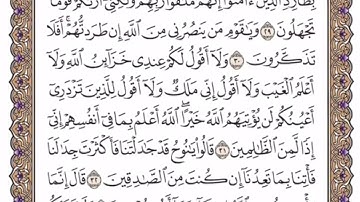 بِطَارِدِ الَّذِينَ ءَامَنُوا إِنَّهُم مُّلَاقُوا رَبِّهِمْ وَلَٰكِنِّي أَرَىٰكُمْ قَوْمًا
تَجْهَلُونَ ۝٢٩ وَيَٰقَوْمِ مَن يَنصُرُنِي مِنَ اللَّهِ إِن طَرَدتُّهُمْ ۚ أَفَلَا
تَذَكَّرُونَ ۝٣٠ وَلَا أَقُولُ لَكُمْ عِندِي خَزَائِنُ اللَّهِ وَلَا
أَعْلَمُ الْغَيْبَ وَلَا أَقُولُ إِنِّي مَلَكٌ وَلَا أَقُولُ لِلَّذِينَ تَزْدَرِي
أَعْيُنُكُمْ لَن يُؤْتِيَهُمُ اللَّهُ خَيْرًا ۖ اللَّهُ أَعْلَمُ بِمَا فِي أَنفُسِهِمْ ۖ إِنِّي
إِذًا لَّمِنَ الظَّٰلِمِينَ ۝٣١ قَالُوا يَٰنُوحُ قَدْ جَٰدَلْتَنَا فَأَكْثَرْتَ جِدَٰلَنَا
فَأْتِنَا بِمَا تَعِدُنَا إِن كُنتَ مِنَ الصَّٰدِقِينَ ۝٣٢ قَالَ إِنَّمَا